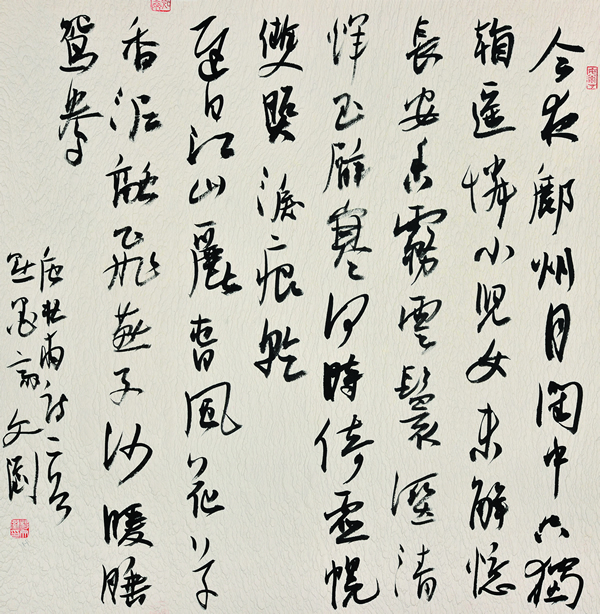 今夜鄜州月閨中只獨
看遙憐小兒女未解憶
長安香霧雲鬟濕清
煇玉臂寒何時倚虛幌
雙照淚痕乾
遲日江山麗春風花草
香泥融飛燕子沙暖睡
鴛鴦
唐杜甫詩二首
文